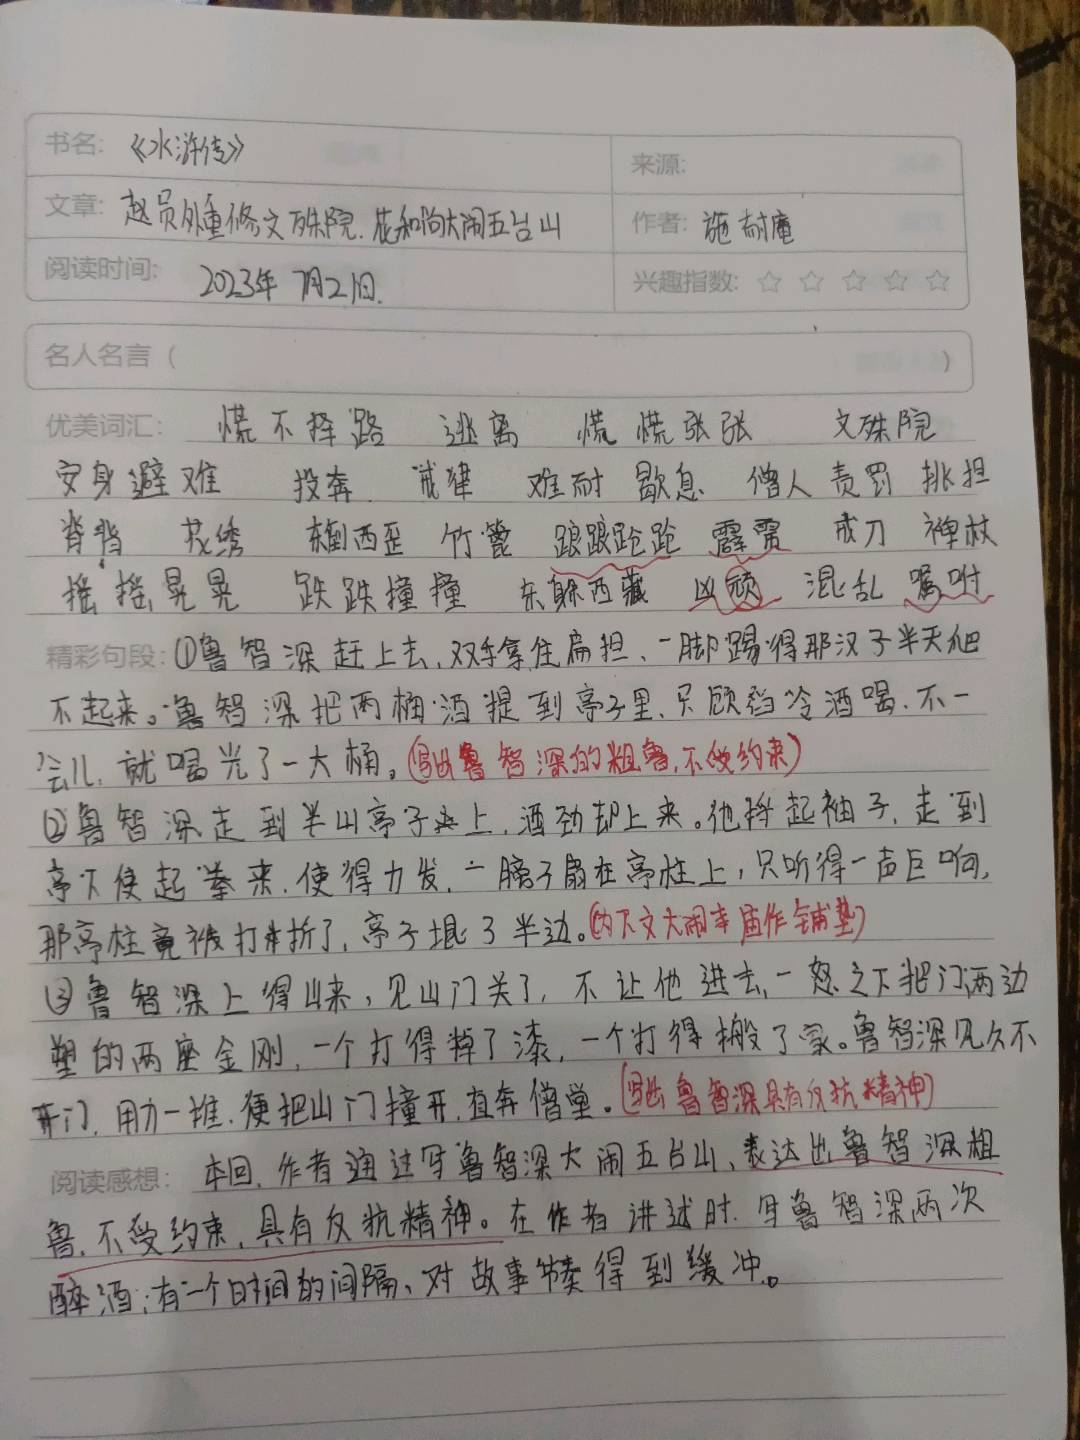 书名: 《水浒传》
来源:
文章: 赵员外重修文殊院.花和尚大闹五台山
作者: 施耐庵
阅读时间: 2023年 7月21日.
兴趣指数: ☆ ☆ ☆ ☆ ☆
名人名言 ( )
优美词汇: 慌不择路 逃离 慌慌张张 文殊院
安身避难 投奔. 戒律 难耐 歇息 僧人 责罚 挑担
脊背 花绣 东倒西歪 竹篦 踉踉跄跄 霹雳 戒刀 禅杖
摇摇晃晃 跌跌撞撞 东躲西藏 凶顽 混乱 嘱咐
精彩句段: ①鲁智深赶上去,双手拿住扁担、一脚踢得那汉子半天爬
不起来。鲁智深把两桶酒提到亭子里、只顾舀冷酒喝.不一
会儿,就喝光了一大桶。(写出鲁智深的粗鲁,不受约束)
②鲁智深走到半山亭子上,酒劲却上来。他捋起袖子,走到
亭下使起拳来.使得力发,一膀子扇在亭柱上,只听得一声巨响,
那亭柱竟被打折了,亭子塌了半边。(为下文大闹寺庙作铺垫)
③鲁智深上得山来,见山门关了,不让他进去,一怒之下把门两边
塑的两座金刚,一个打得掉了漆,一个打得搬了家。鲁智深见久不
开门,用力一推.便把山门撞开,直奔僧堂。(写出鲁智深具有反抗精神)
阅读感想: 本回,作者通过写鲁智深大闹五台山、表达出鲁智深粗
鲁,不受约束,具有反抗精神。在作者讲述时.写鲁智深两次
醉酒;有一个时间的间隔、对故事节奏得到缓冲。